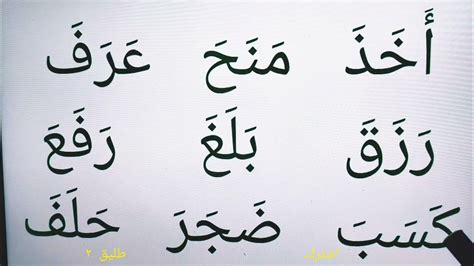 أَخَذَ مَنَحَ عَرَفَ
رَزَقَ بَلَغَ رَفَعَ
كَسَبَ ضَجَرَ حَلَفَ
طليق ٢